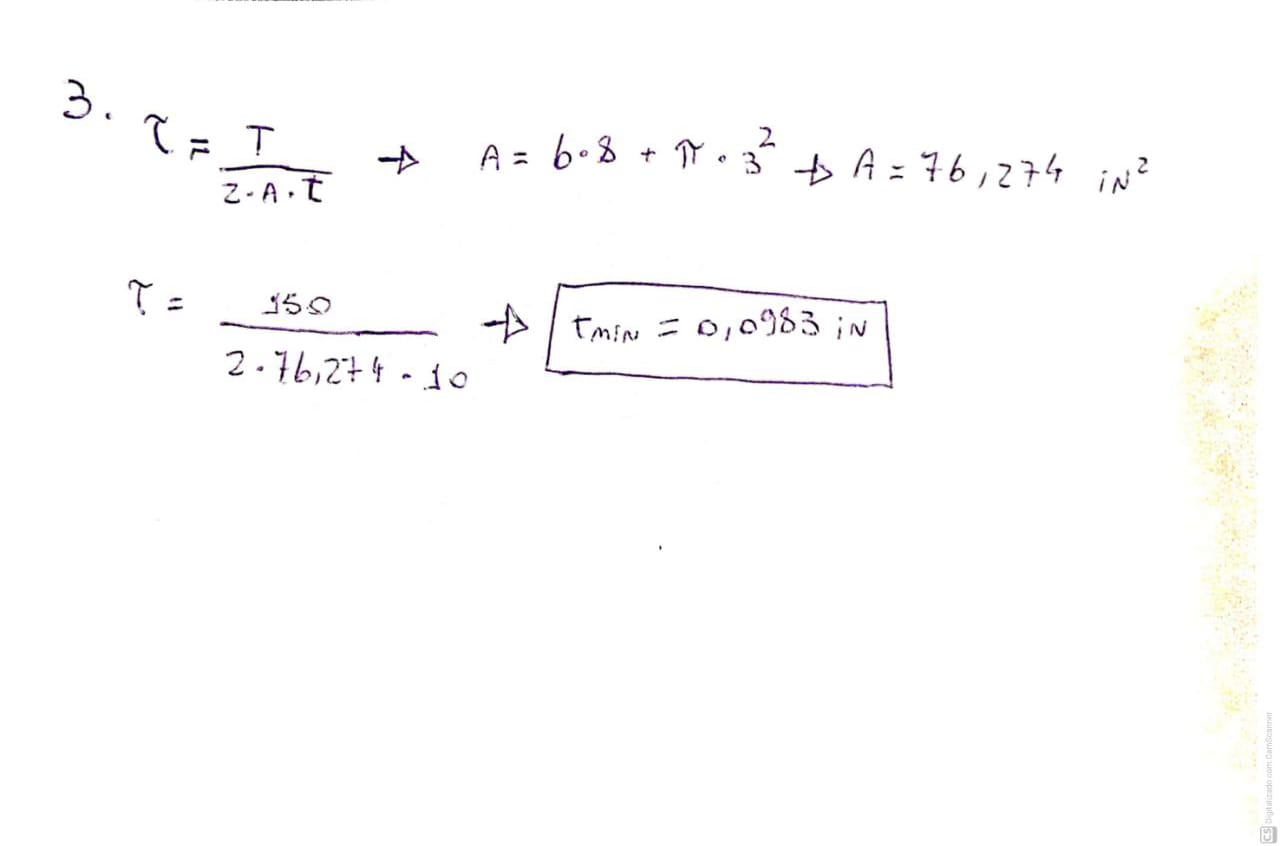 3. τ = T / 2·A·t → A = 6·8 + π·3² → A = 76,274 iN²
τ = 150 / 2·76,274·10 → tmiN = 0,0983 iN
CS Digitalizado com CamScanner